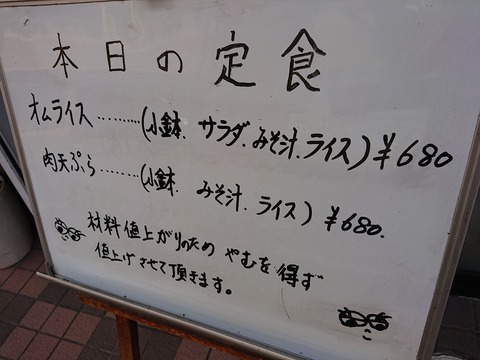 本日の定食
オムライス………(小鉢.サラダ.みそ汁.ライス)¥680
肉天ぷら………(小鉢.みそ汁.ライス)¥680.
材料値上がりのため やむを得ず
値上げさせて頂きます。